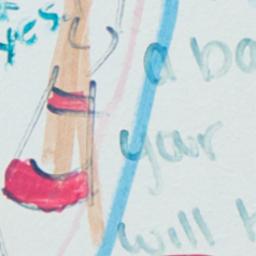 yes.
a ba
your
will